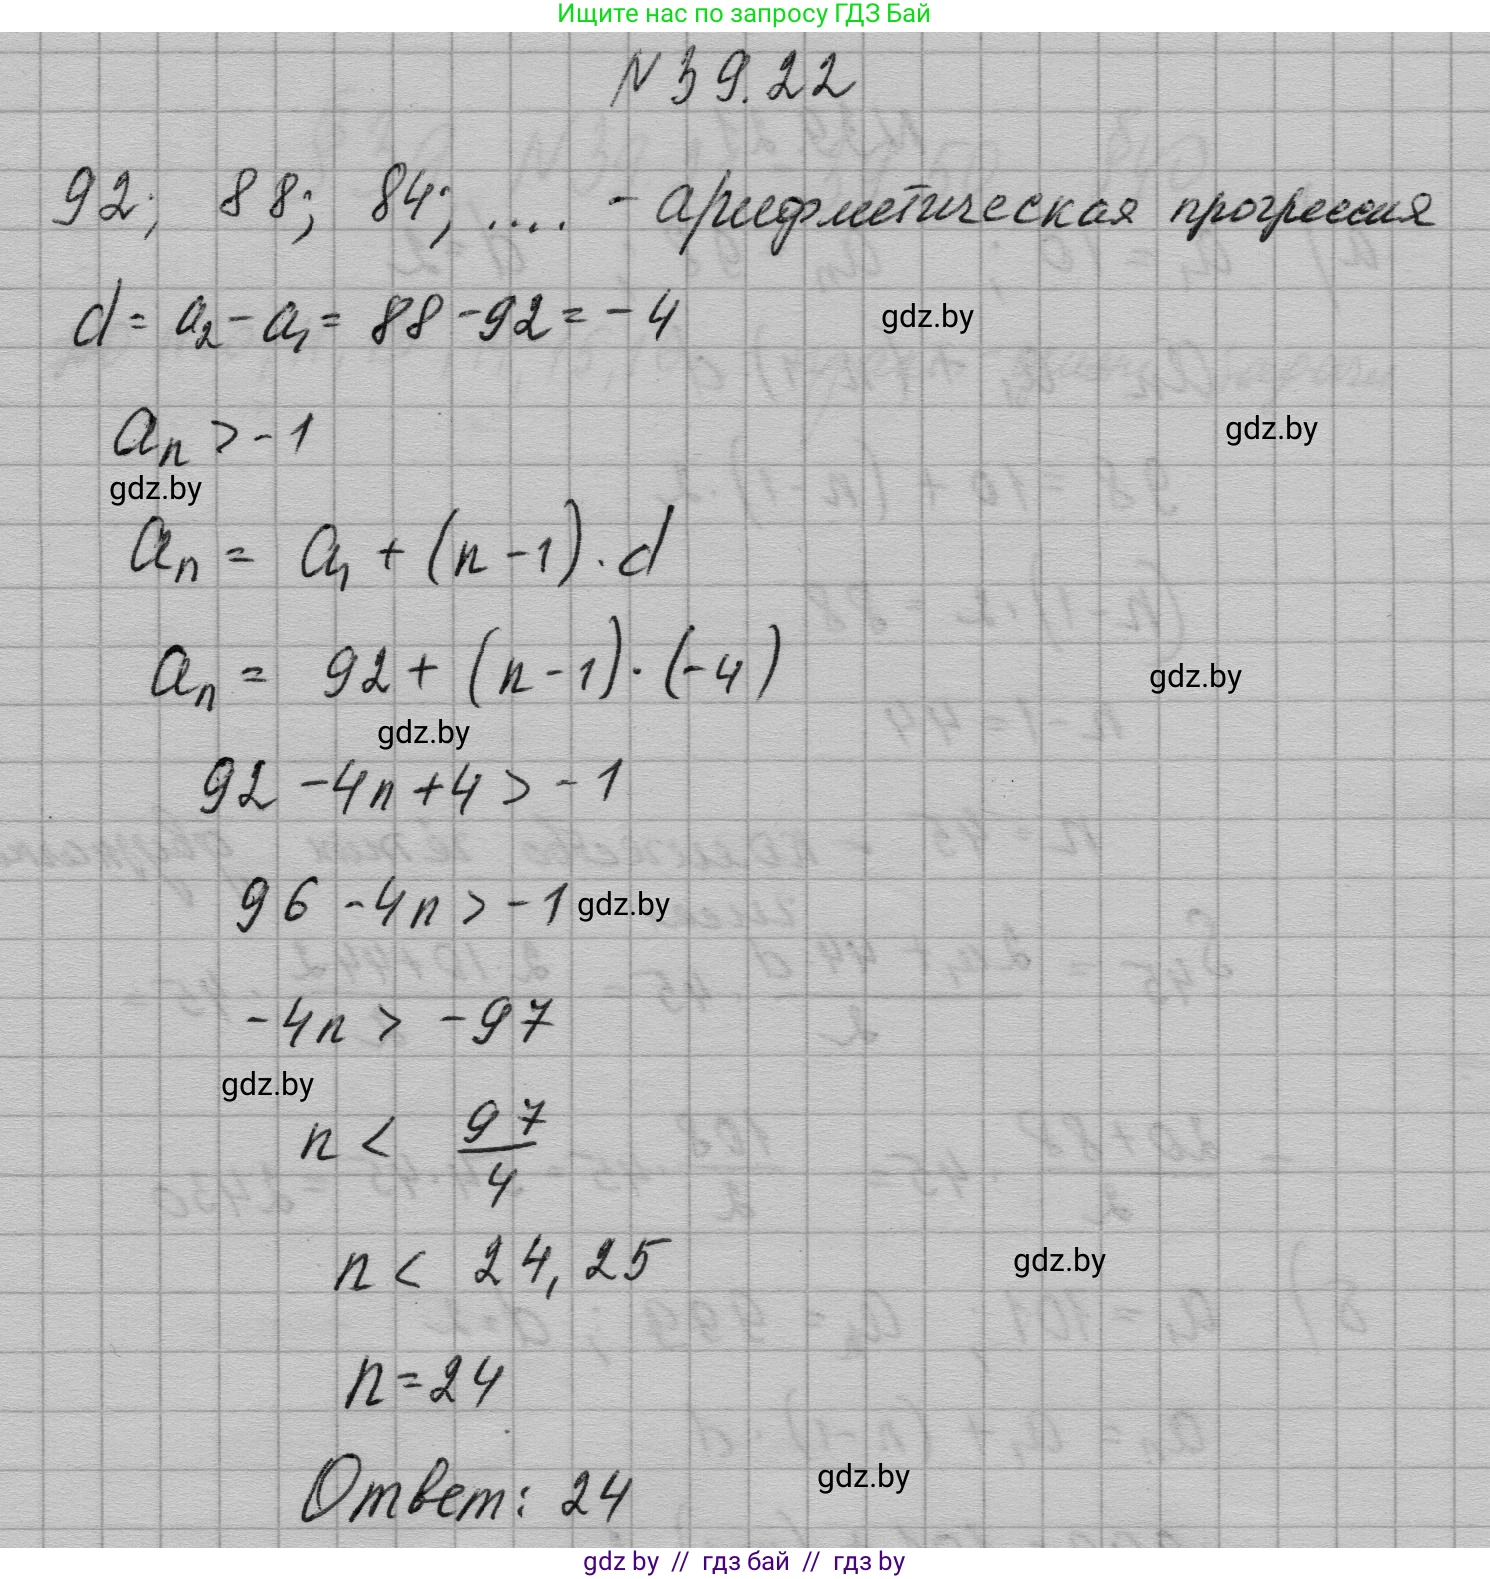 Ищите нас по запросу ГДЗ Бай
N 39.22
92; 88; 84; .... - арифметическая прогрессия
d = a₂ - a₁ = 88 - 92 = -4
gdz.by
aₙ > -1
gdz.by
gdz.by
aₙ = a₁ + (n-1) · d
aₙ = 92 + (n-1) · (-4)
gdz.by
gdz.by
92 - 4n + 4 > -1
96 - 4n > -1
gdz.by
-4n > -97
gdz.by
n < 97/4
n < 24,25
gdz.by
n = 24
Ответ: 24
gdz.by
gdz by // гдз бай // гдз by